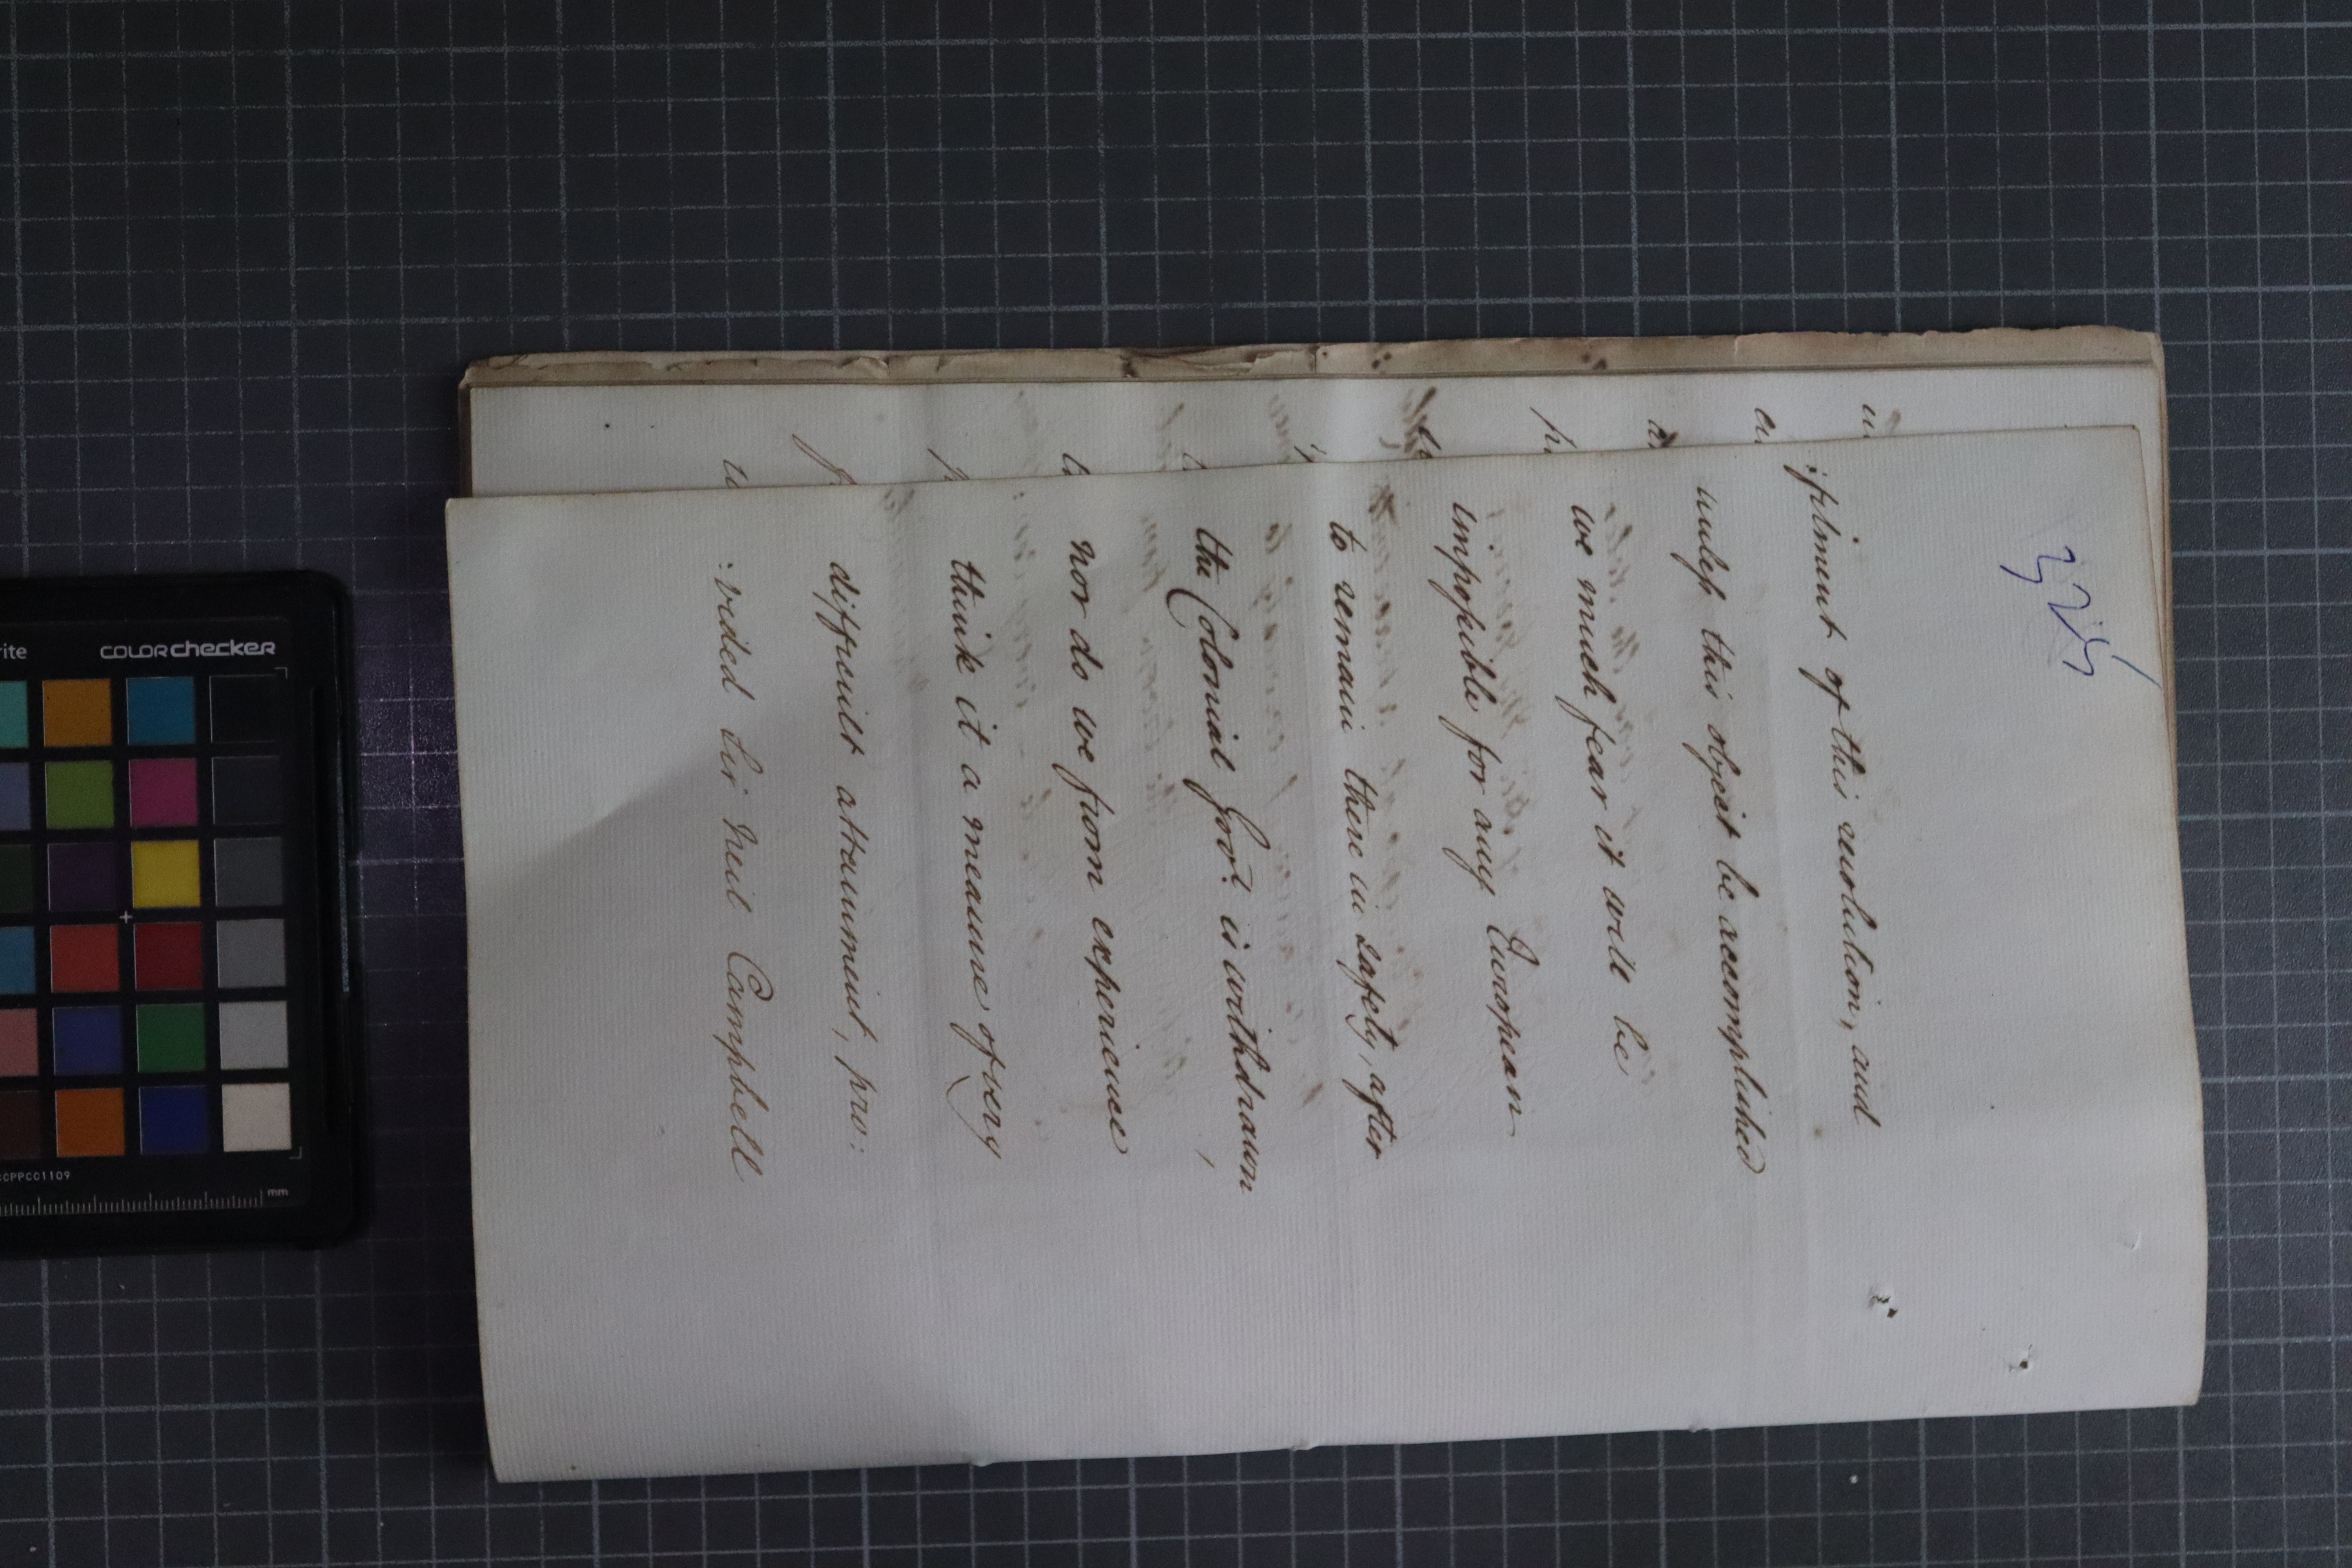 325
:ifsiment of this revolution, and
unless this object be accomplished
we much fear it will be
impossible for any European
to remain there in safety, after
the Colonial Govt. is withdrawn,
nor do we from experience
think it a measure of very
difficult attainment, pro:
:vided Sir Neil Campbell
colorchecker
CCPPCC1109
mm